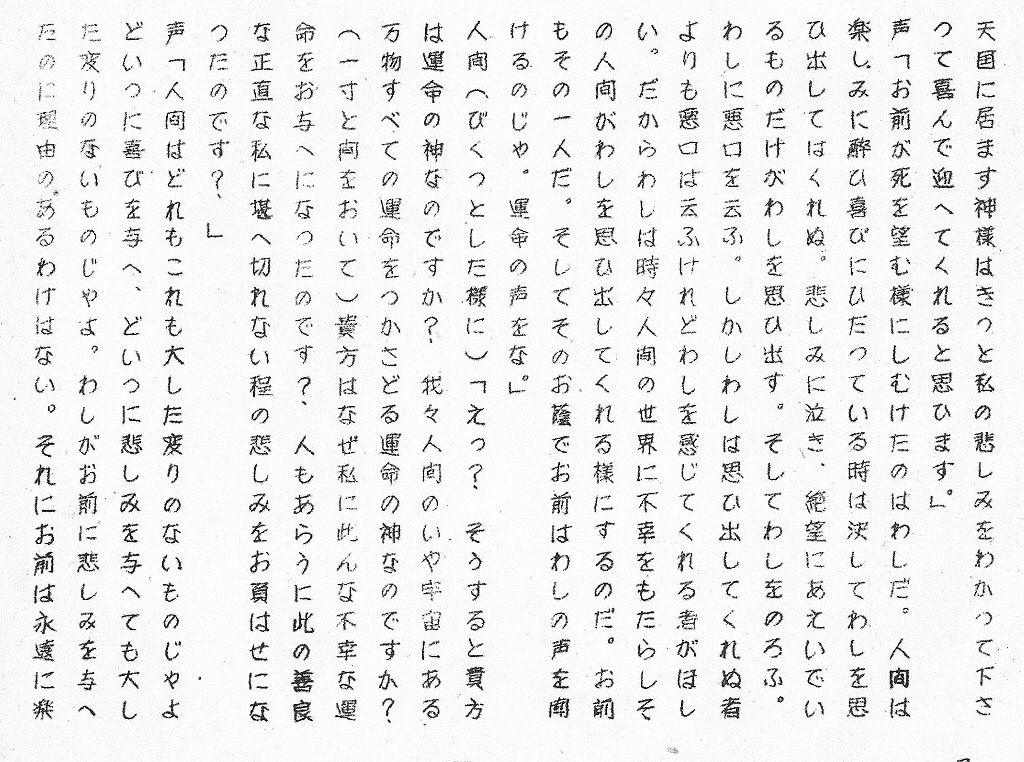 天国に居ます神様はきっと私の悲しみをわかつて下さ
つて喜んで迎へてくれると思ひます」。
声「お前が死を望む様にしむけたのはわしだ。人間は
楽しみに酔ひ喜びにひたつている時は決してわしを思
ひ出してはくれぬ。悲しみに泣き、絶望にあえいでい
るものだけがわしを思ひ出す。そしてわしをのろふ。
わしに悪口を云ふ。しかしわしは思ひ出してくれぬ者
よりも悪口は云ふけれどわしを感じてくれる者がほし
い。だからわしは時々人間の世界に不幸をもたらしそ
の人間がわしを思ひ出してくれる様にするのだ。お前
もその一人だ。そしてそのお蔭でお前はわしの声を聞
けるのじや。運命の声をな」。
人間（びくつとした様に）「えつ？　そうすると貴方
は運命の神なのですか？　我々人間のいや宇宙にある
万物すべての運命をつかさどる運命の神なのですか？
（一寸と間をおいて）貴方はなぜ私に此んな不幸な運
命をお与へになつたのです？、人もあらうに此の善良
な正直な私に堪へ切れない程の悲しみをお負はせにな
つたのです？、」
声「人間はどれもこれも大した変りのないものじやよ
どいつに喜びを与へ、どいつに悲しみを与へても大し
た変りのないものじやよ。わしがお前に悲しみを与へ
たのに理由のあるわけはない。それにお前は永遠に楽